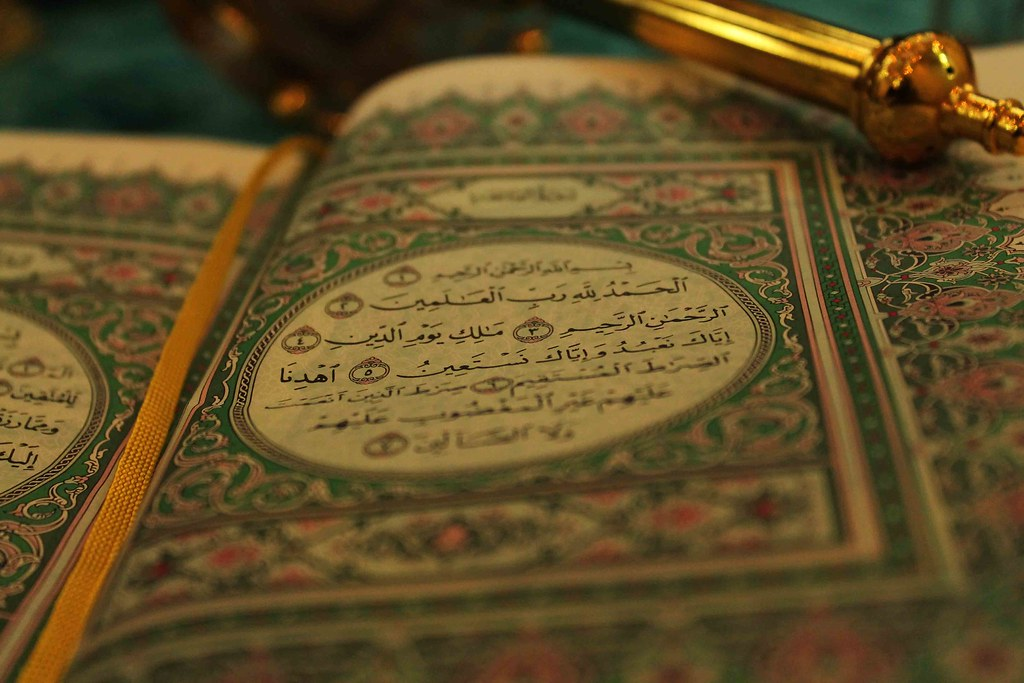 بِسْمِ اللَّهِ الرَّحْمَٰنِ الرَّحِيمِ ١
الْحَمْدُ لِلَّهِ رَبِّ الْعَٰلَمِينَ ٢
الرَّحْمَٰنِ الرَّحِيمِ ٣ مَٰلِكِ يَوْمِ الدِّينِ ٤
إِيَّاكَ نَعْبُدُ وَإِيَّاكَ نَسْتَعِينُ ٥ اهْدِنَا
الصِّرَٰطَ الْمُسْتَقِيمَ ٦ صِرَٰطَ الَّذِينَ أَنْعَمْتَ
عَلَيْهِمْ غَيْرِ الْمَغْضُوبِ عَلَيْهِمْ
وَلَا الضَّالِّينَ ٧
لِلْمُتَّقِينَ
إِلَيْكَ